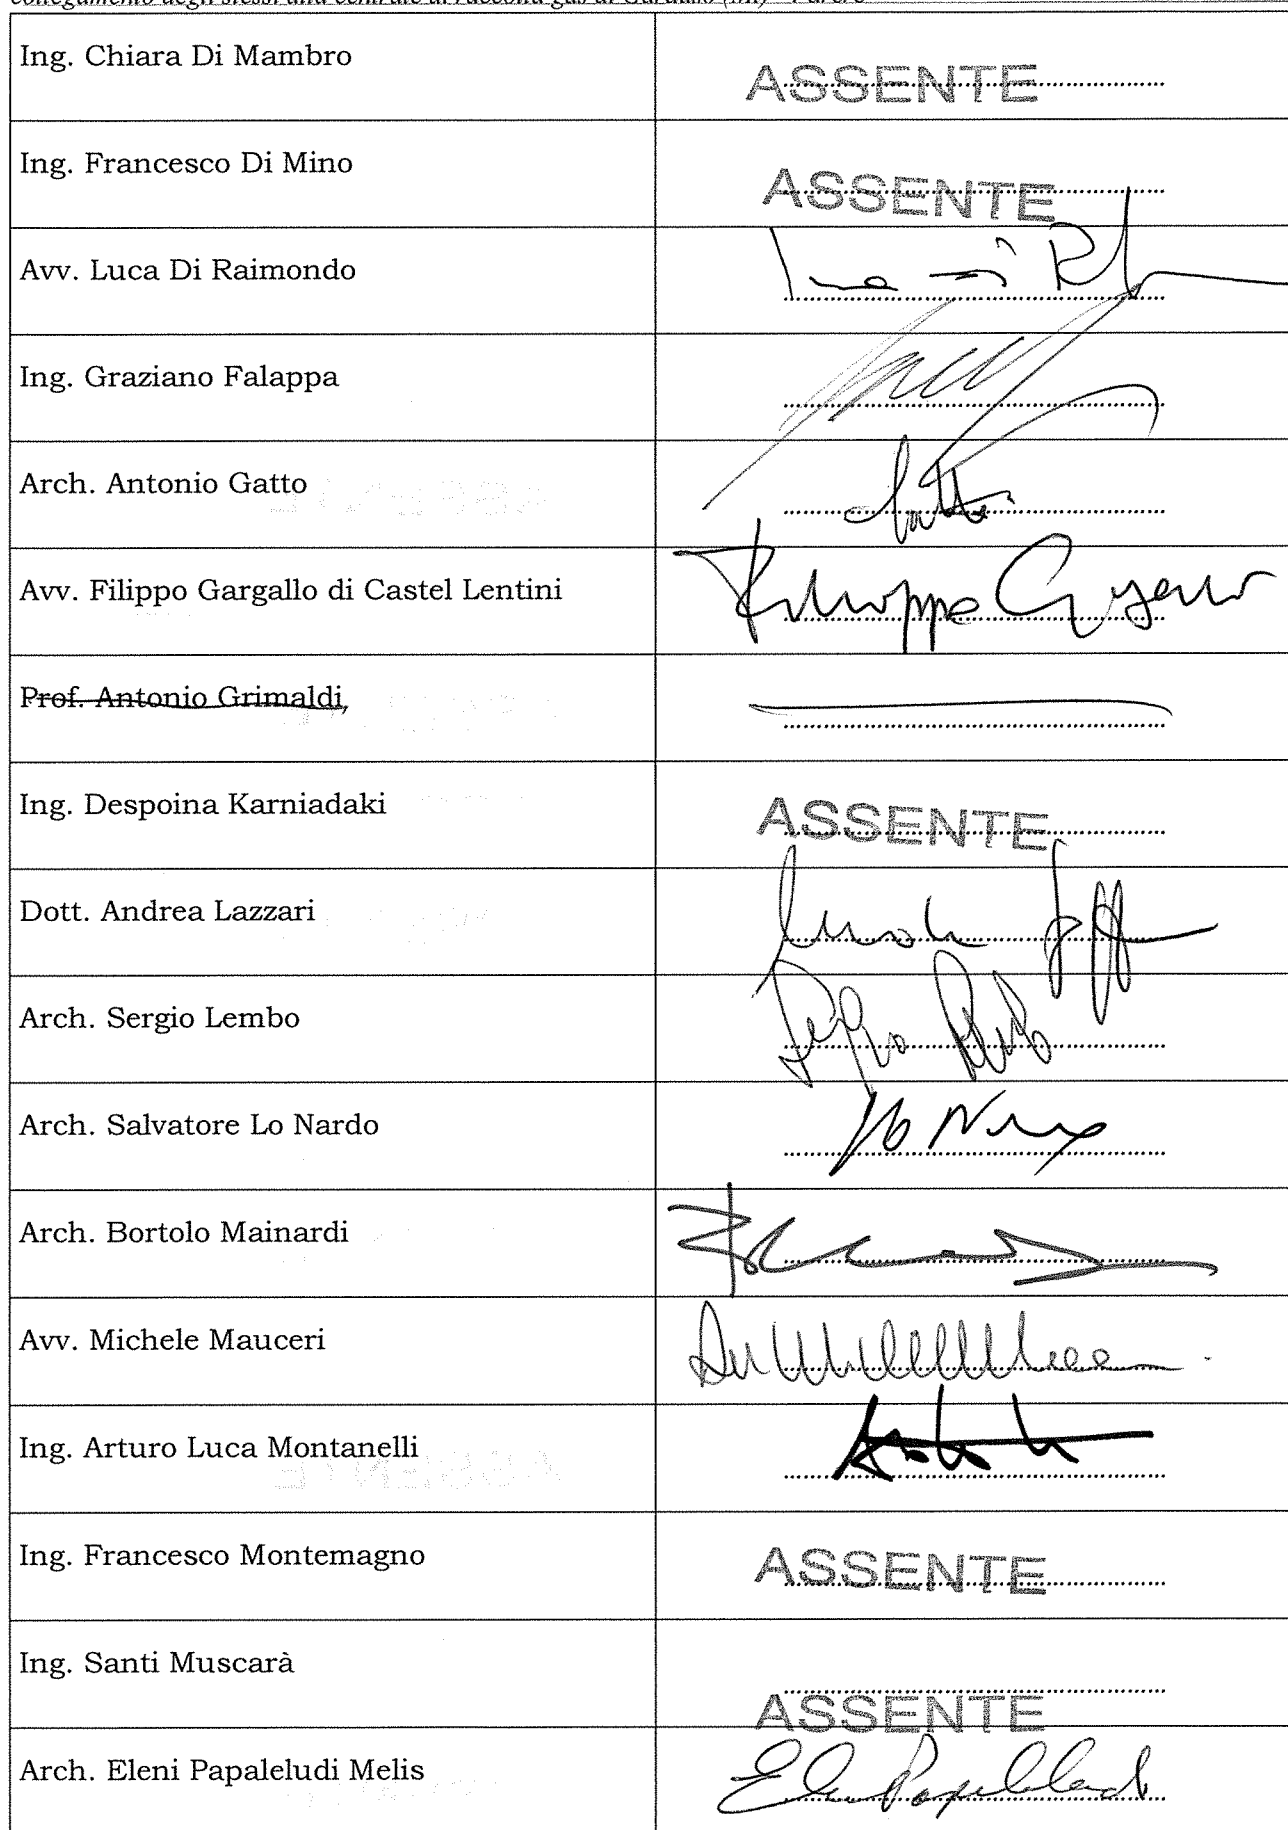 collegamento degli stessi alla centrale di raccolta gas di
Ing. Chiara Di Mambro
ASSENTE
Ing. Francesco Di Mino
ASSENTE
Avv. Luca Di Raimondo
Ing. Graziano Falappa
Arch. Antonio Gatto
Gatto
Avv. Filippo Gargallo di Castel Lentini
Filippo Gargallo
Prof. Antonio Grimaldi,
Ing. Despoina Karniadaki
ASSENTE
Dott. Andrea Lazzari
Arch. Sergio Lembo
Arch. Salvatore Lo Nardo
Arch. Bortolo Mainardi
Avv. Michele Mauceri
Ing. Arturo Luca Montanelli
Ing. Francesco Montemagno
ASSENTE
Ing. Santi Muscarà
ASSENTE
Arch. Eleni Papaleludi Melis